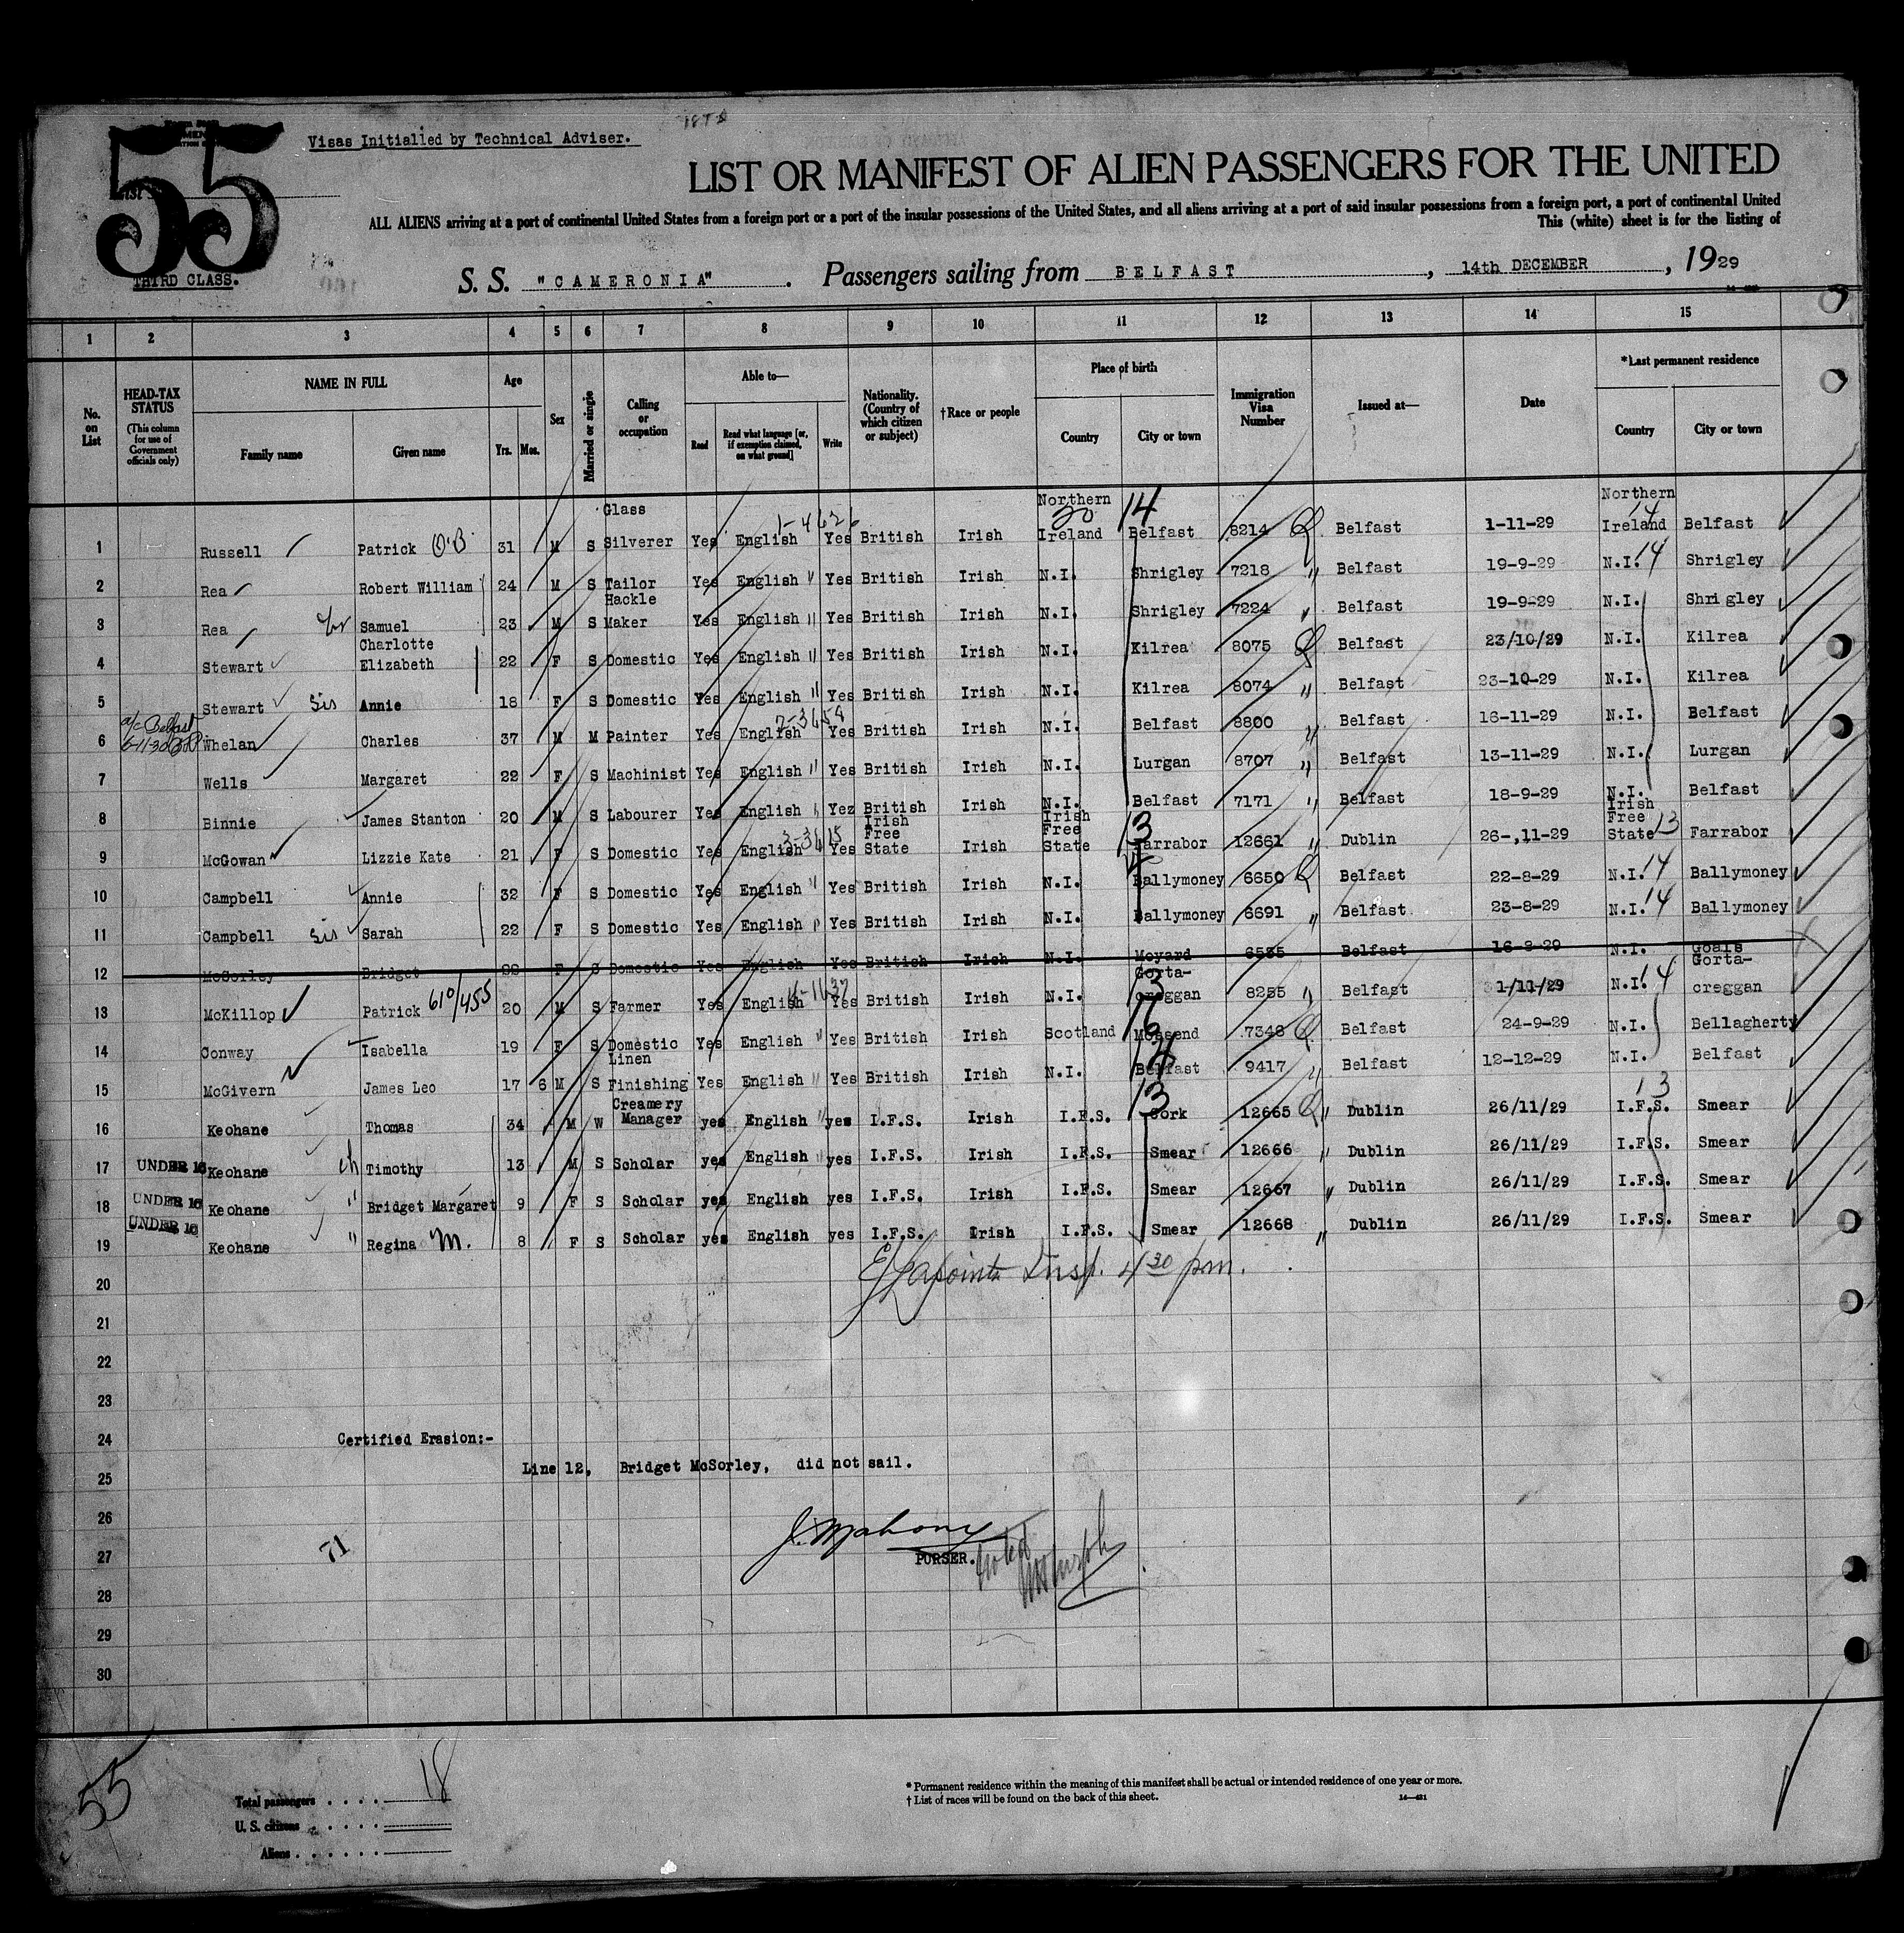 55
Visas Initialled by Technical Adviser.
LIST OR MANIFEST OF ALIEN PASSENGERS FOR THE UNITED
ALL ALIENS arriving at a port of continental United States from a foreign port or a port of the insular possessions of the United States, and all aliens arriving at a port of said insular possessions from a foreign port, a port of continental United
This (white) sheet is for the listing of
THIRD CLASS.
S. S. "CAMERONIA". Passengers sailing from BELFAST, 14th DECEMBER, 1929
1 2 3 4 5 6 7 8 9 10 11 12 13 14 15
No. on List
HEAD-TAX STATUS (This column for use of Government officials only)
NAME IN FULL Family name Given name
Age Yrs. Mos.
Sex
Married or single
Calling or occupation
Able to— Read Read what language [or, if exemption claimed, on what ground] Write
Nationality. (Country of which citizen or subject)
†Race or people
Place of birth Country City or town
Immigration Visa Number
Issued at—
Date
*Last permanent residence Country City or town
1 Russell Patrick O'B 31 M S Glass Silverer Yes English 1-4626 Yes British Irish Northern Ireland 20 14 Belfast 8214 Belfast 1-11-29 Northern Ireland 14 Belfast
2 Rea Robert William 24 M S Tailor Yes English " Yes British Irish N.I. Shrigley 7218 " Belfast 19-9-29 N.I. 14 Shrigley
3 Rea br Samuel 23 M S Hackle Maker Yes English " Yes British Irish N.I. Shrigley 7224 " Belfast 19-9-29 N.I. Shrigley
4 Stewart Charlotte Elizabeth 22 F S Domestic Yes English " Yes British Irish N.I. Kilrea 8075 Belfast 23/10/29 N.I. Kilrea
5 Stewart Sis Annie 18 F S Domestic Yes English " Yes British Irish N.I. Kilrea 8074 " Belfast 23-10-29 N.I. Kilrea
a/c Belfast
6 Whelan Charles 37 M M Painter Yes English 2-3658 Yes British Irish N.I. Belfast 8800 " Belfast 16-11-29 N.I. Belfast
7 Wells Margaret 22 F S Machinist Yes English " Yes British Irish N.I. Lurgan 8707 " Belfast 13-11-29 N.I. Lurgan
8 Binnie James Stanton 20 M S Labourer Yes English " Yez British Irish N.I. Belfast 7171 " Belfast 18-9-29 N.I. Belfast
9 McGowan Lizzie Kate 21 F S Domestic Yes English 3-3615 Yes Irish Free State Irish Irish Free State 13 Farrabor 12661 " Dublin 26-,11-29 Irish Free State 13 Farrabor
10 Campbell Annie 32 F S Domestic Yes English " Yes British Irish N.I. Ballymoney 6650 Belfast 22-8-29 N.I. 14 Ballymoney
11 Campbell Sis Sarah 22 F S Domestic Yes English " Yes British Irish N.I. Ballymoney 6691 " Belfast 23-8-29 N.I. 14 Ballymoney
12 McSorley Bridget F S Domestic Yes English Yes British Irish N.I. Moyard 6535 Belfast N.I. Goals
13 McKillop Patrick 610/455 20 M S Farmer Yes English Yes British Irish N.I. 13 Gorta-creggan 8255 " Belfast 1/11/29 N.I. 14 Gorta-creggan
14 Conway Isabella 19 F S Domestic Yes English " Yes British Irish Scotland 16 Mossend 7348 Belfast 24-9-29 N.I. Bellagherty
15 McGivern James Leo 17 6 M S Linen Finishing Yes English " Yes British Irish N.I. 14 Belfast 9417 " Belfast 12-12-29 N.I. Belfast
16 Keohane Thomas 34 M W Creamery Manager yes English " yes I.F.S. Irish I.F.S. 13 Cork 12665 " Dublin 26/11/29 I.F.S. 13 Smear
17 UNDER 16 Keohane ch Timothy 13 M S Scholar yes English " yes I.F.S. Irish I.F.S. Smear 12666 " Dublin 26/11/29 I.F.S. Smear
18 UNDER 16 Keohane " Bridget Margaret 9 F S Scholar yes English yes I.F.S. Irish I.F.S. Smear 12667 " Dublin 26/11/29 I.F.S. Smear
19 UNDER 16 Keohane " Regina M. 8 F S Scholar yes English yes I.F.S. Irish I.F.S. Smear 12668 " Dublin 26/11/29 I.F.S. Smear
20 Lapointe Insp. 4 30 pm.
21
22
23
24 Certified Erasion:-
25 Line 12, Bridget McSorley, did not sail.
26 J. Mahony
27 71 PURSER.
28
29
30
55
Total passengers . . . . 18
U. S. citizens . . . . .
Aliens . . . . . .
* Permanent residence within the meaning of this manifest shall be actual or intended residence of one year or more.
† List of races will be found on the back of this sheet. 14—421